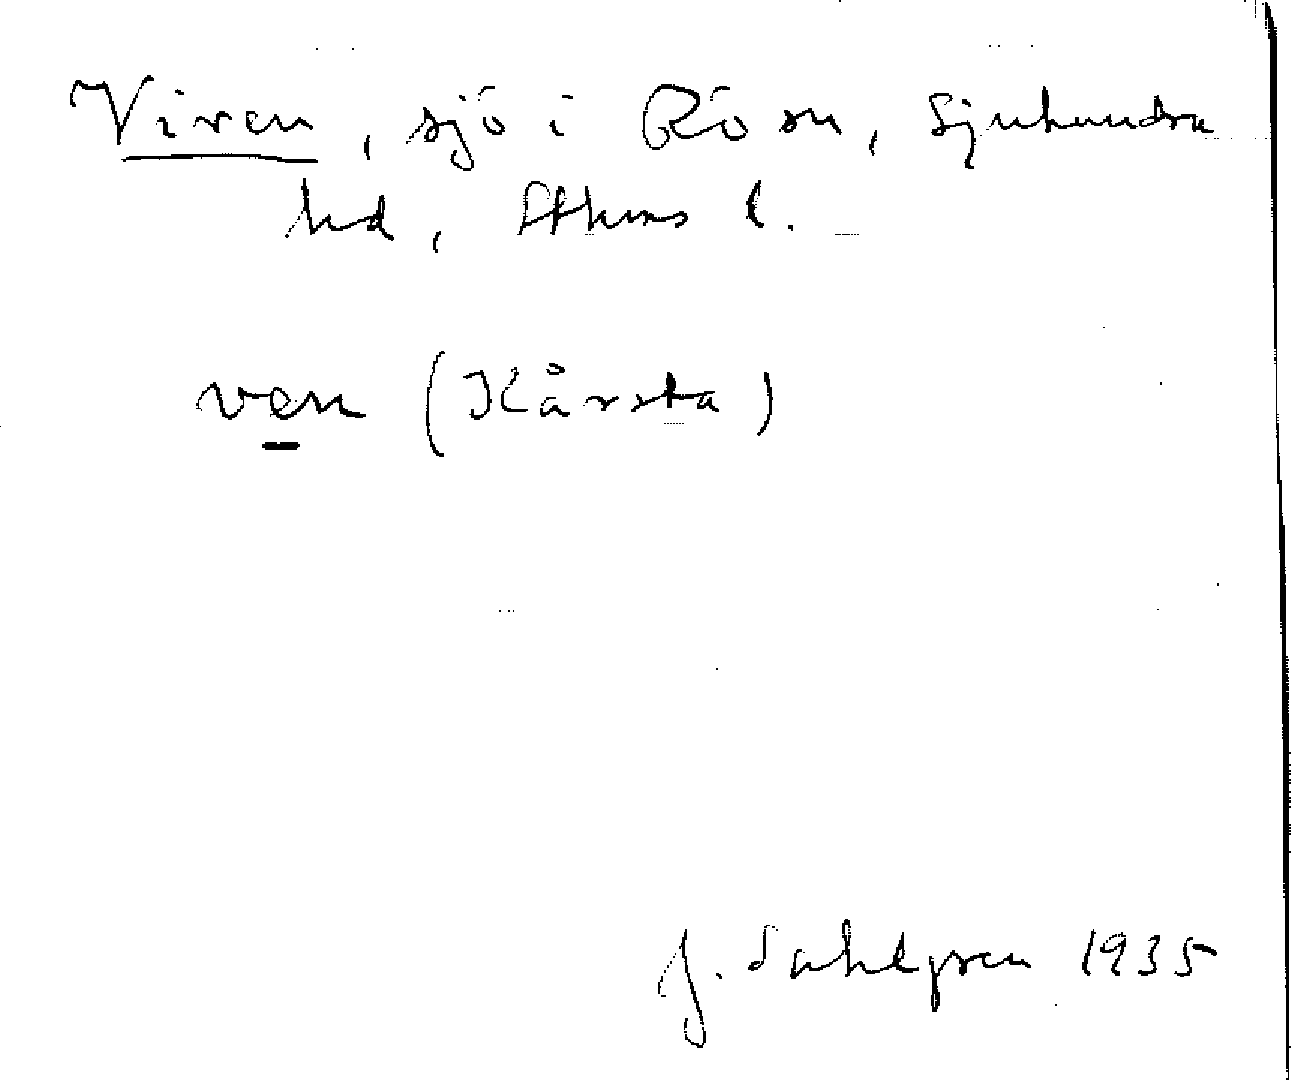 Viren, sjö i Rö sn, Sjuhundra
hd, Sthms l.
ven (Kårsta)
J. Sahlgren 1935